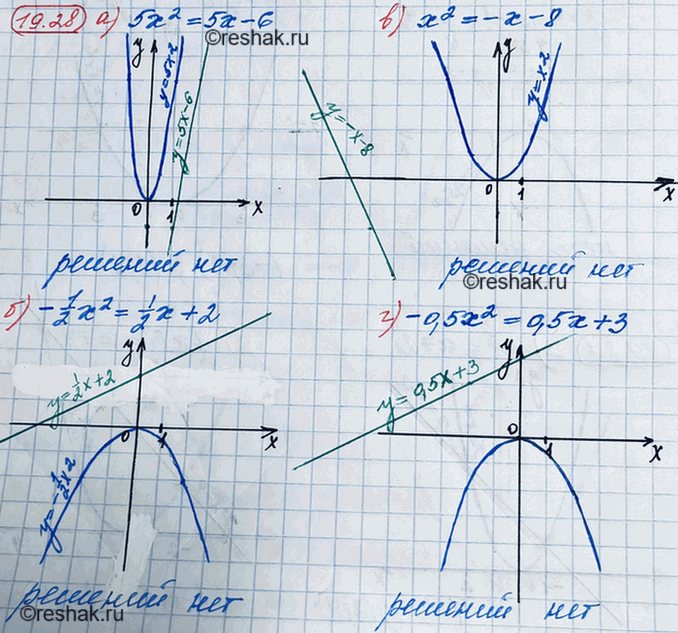 19.28 а) 5x² = 5x-6
©reshak.ru
y
y=5x2
y=5x-6
0 1 x
решений нет
в) x² = -x-8
y
y=x2
y=-x-8
0 1 x
решений нет
©reshak.ru
б) -1/2x² = 1/2x+2
y
y=1/2x+2
0 1 x
y=-1/2x2
решений нет
©reshak.ru
г) -0,5x² = 0,5x+3
y
y=0,5x+3
0 1 x
решений нет